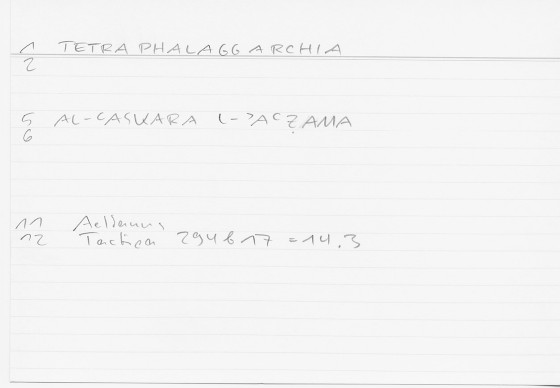 1 TETRAPHALAGGARCHIA
2
5 AL-ʿASKARA L-ʾAʿẒAMA
6
11 Aelianus
12 Tactica 294 b 17 = 14.3